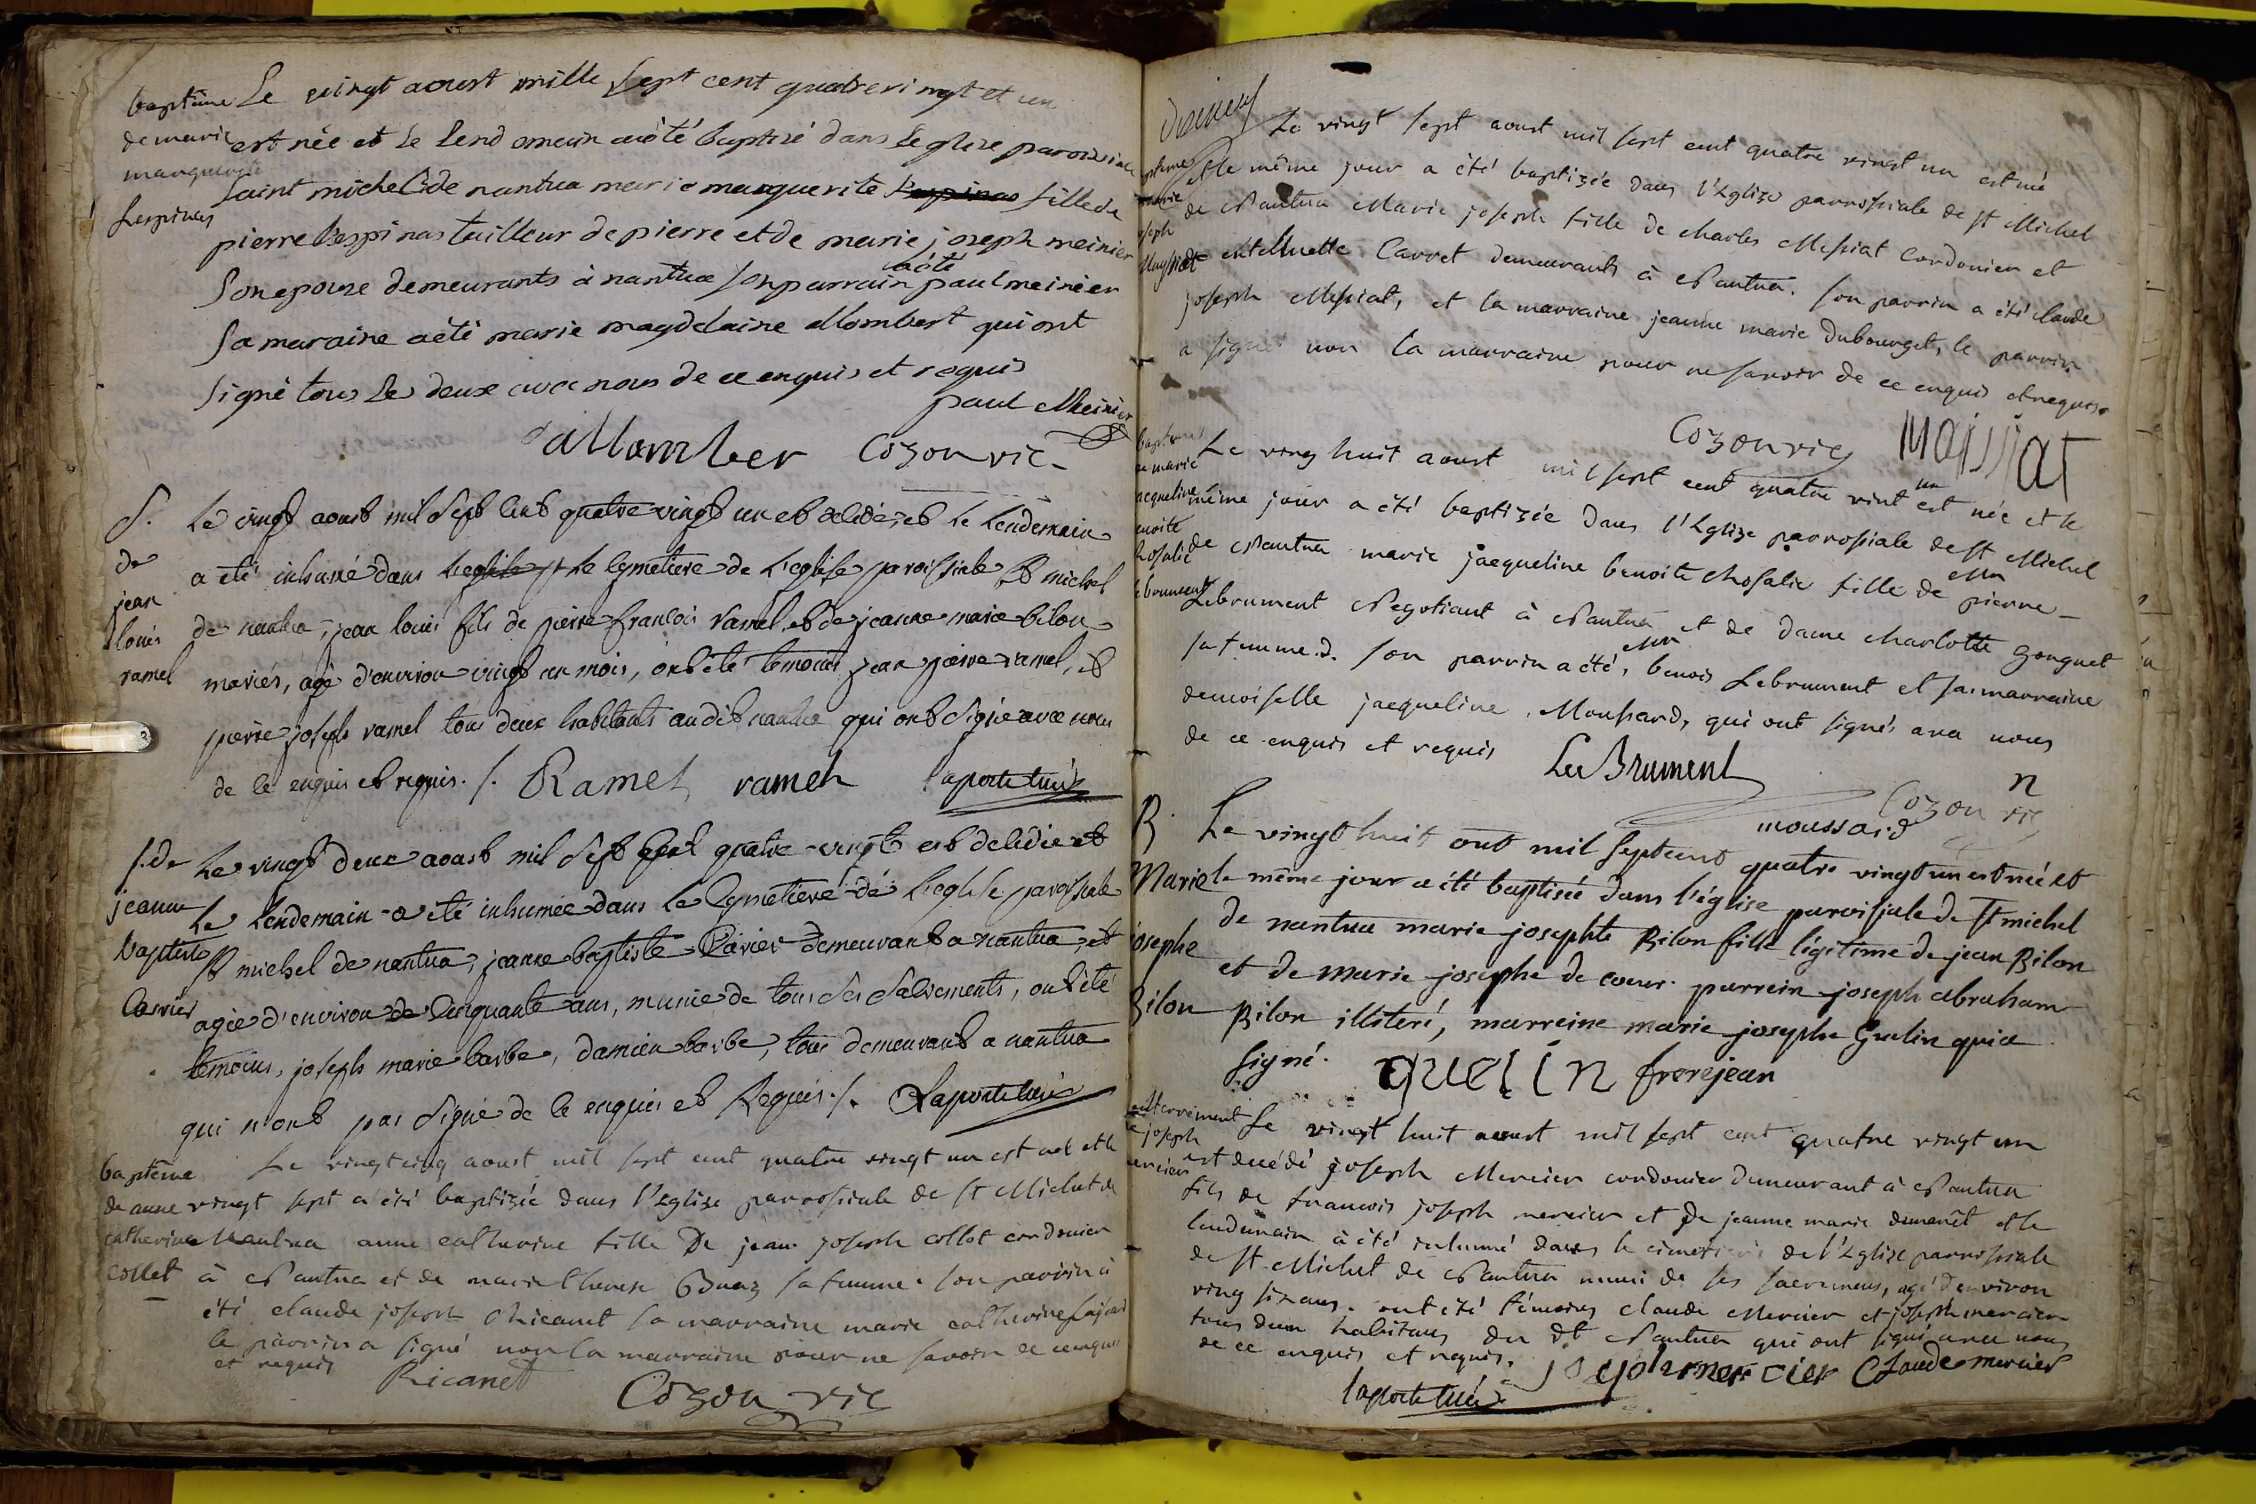 baptême Le vingt aoust mille sept cent quatrevingt et un
de marie est née et le lendemain a été baptisé dans leglise paroissiale
marguerite saint michel de nantua marie marguerite fille de
Lespinas
pierre Lespinas tailleur de pierre et de marie joseph meinier
son epouse demeurants à nantua son parrain a été paul meinier
sa maraine a été marie magdelaine allombert qui ont
signé tous les deux avec nous de ce enquis et requis
paul Meinier
allomber Cozon vic
S. Le vingt aoust mil Sept cent quatre vingt un est décédé, et le lendemain
de a été inhumé dans le cymetiere de l'eglise paroissiale St michel
jean
louis de nantua, jean louis fils de pierre françois ramel et de jeanne marie bilon
ramel mariés, agé d'environ vingt un mois, ont été temoins jean pierre ramel, et
pierre joseph ramel tous deux habitants audit nantua qui ont signé avec nous
de ce enquis et requis ./. Ramel ramel Laporte curé
S. de Le vingt deux aoust mil Sept cent quatre-vingt est decedée et
jeanne Le lendemain a été inhumée dans le cymetiere de l'eglise paroissiale
baptiste St michel de nantua, jeanne baptiste Carrier demeurant a nantua, et
Carrier agée d'environ cinquante ans, munie de tous ses sacrements, ont été
temoins, joseph marie barbe, damien barbe, tous demeurant a nantua
qui n'ont pas signé de ce enquis et requis ./. Laporte curé
baptême Le vingt cinq aoust mil sept cent quatre vingt un est née et le
de anne vingt sept a été baptizée dans l'Eglize parrossiale de St Michel de
catherine Nantua anne catherine fille De jean joseph collet cordonier
collet à Nantua et de marie therese sa femme. son parrin a
été claude joseph Ricanet sa marraine marie catherine
le parrin a signé non la marraine pour ne savoir de ce enquis
et requis Ricanet
Cozon vic
Le vingt sept aoust mil sept cent quatre vingt un est né
et le même jour a été baptizée dans l'Eglize parrossiale de St Michel
marie de Nantua Marie joseph fille de charles Messiat cordonier et
joseph
Messiat Carret demeurants à Nantua. son parrin a été claude
joseph Messiat, et la marraine jeanne marie Dubourget, le parrin
a signé non la marraine pour ne savoir de ce enquis et requis.
Cozon vic Maissiat
baptême Le ving huit aoust mil sept cent quatre vint un est née et le
de marie
jacqueline même jour a été baptizée dans l'Eglize parrossiale de St Michel
benoite de Nantua marie jacqueline benoite Rosalie fille de Mr pierre
Rosalie
Lebrument Lebrument Negotiant à Nantua et de Dame charlotte Gonguet
sa femme. son parrin a été, Mr benois Lebrument et sa marraine
demoiselle jacqueline Moussard, qui ont signés avec nous
de ce enquis et requis Le Brument
moussard Cozon vic
B. Le vingt huit aout mil sept cent quatre vingt un est née et
Marie le même jour a été baptisée dans l'église paroissiale de St michel
josephe de nantua marie josephte Bilon fille légitime de jean Bilon
et de marie josephe de coeur. parrein joseph abraham
Bilon Bilon illiteré, marreine marie josephe Guelin qui a
signé. quelin frerejean
enterrement Le vingt huit aoust mil sept cent quatre vingt un
de joseph
mercier est décédé joseph Mercier cordonier demeurant à Nantua
fils de francois joseph mercier et De jeanne marie et le
lendemain à été inhumé dans le cimetière de l'Eglize parrossiale
de St Michel de Nantua muni de ses sacremens, agé d'environ
ving six ans. ont été témoins claude Mercier et joseph mercier
tous deux habitans du dt Nantua qui ont signé avec nous
de ce enquis et requis. joseph mercier Claude mercier
Laporte curé